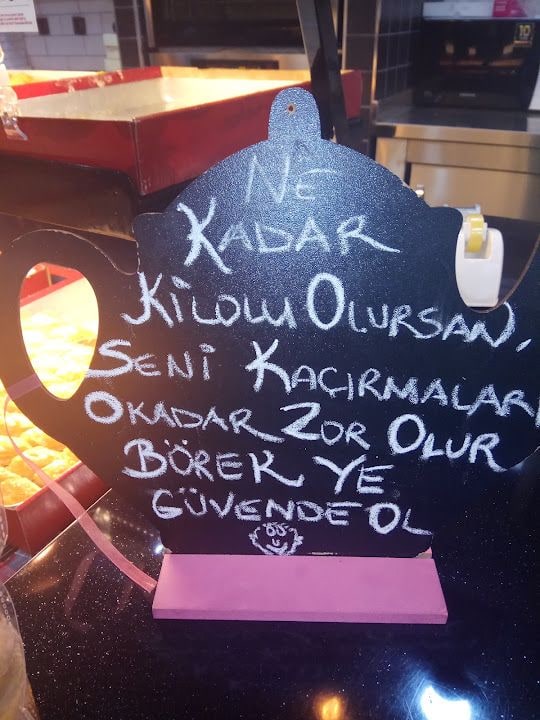 NE
KADAR
KİLOLU OLURSAN,
SENİ KAÇIRMALARI
OKADAR ZOR OLUR
BÖREK YE
GÜVENDE OL
10